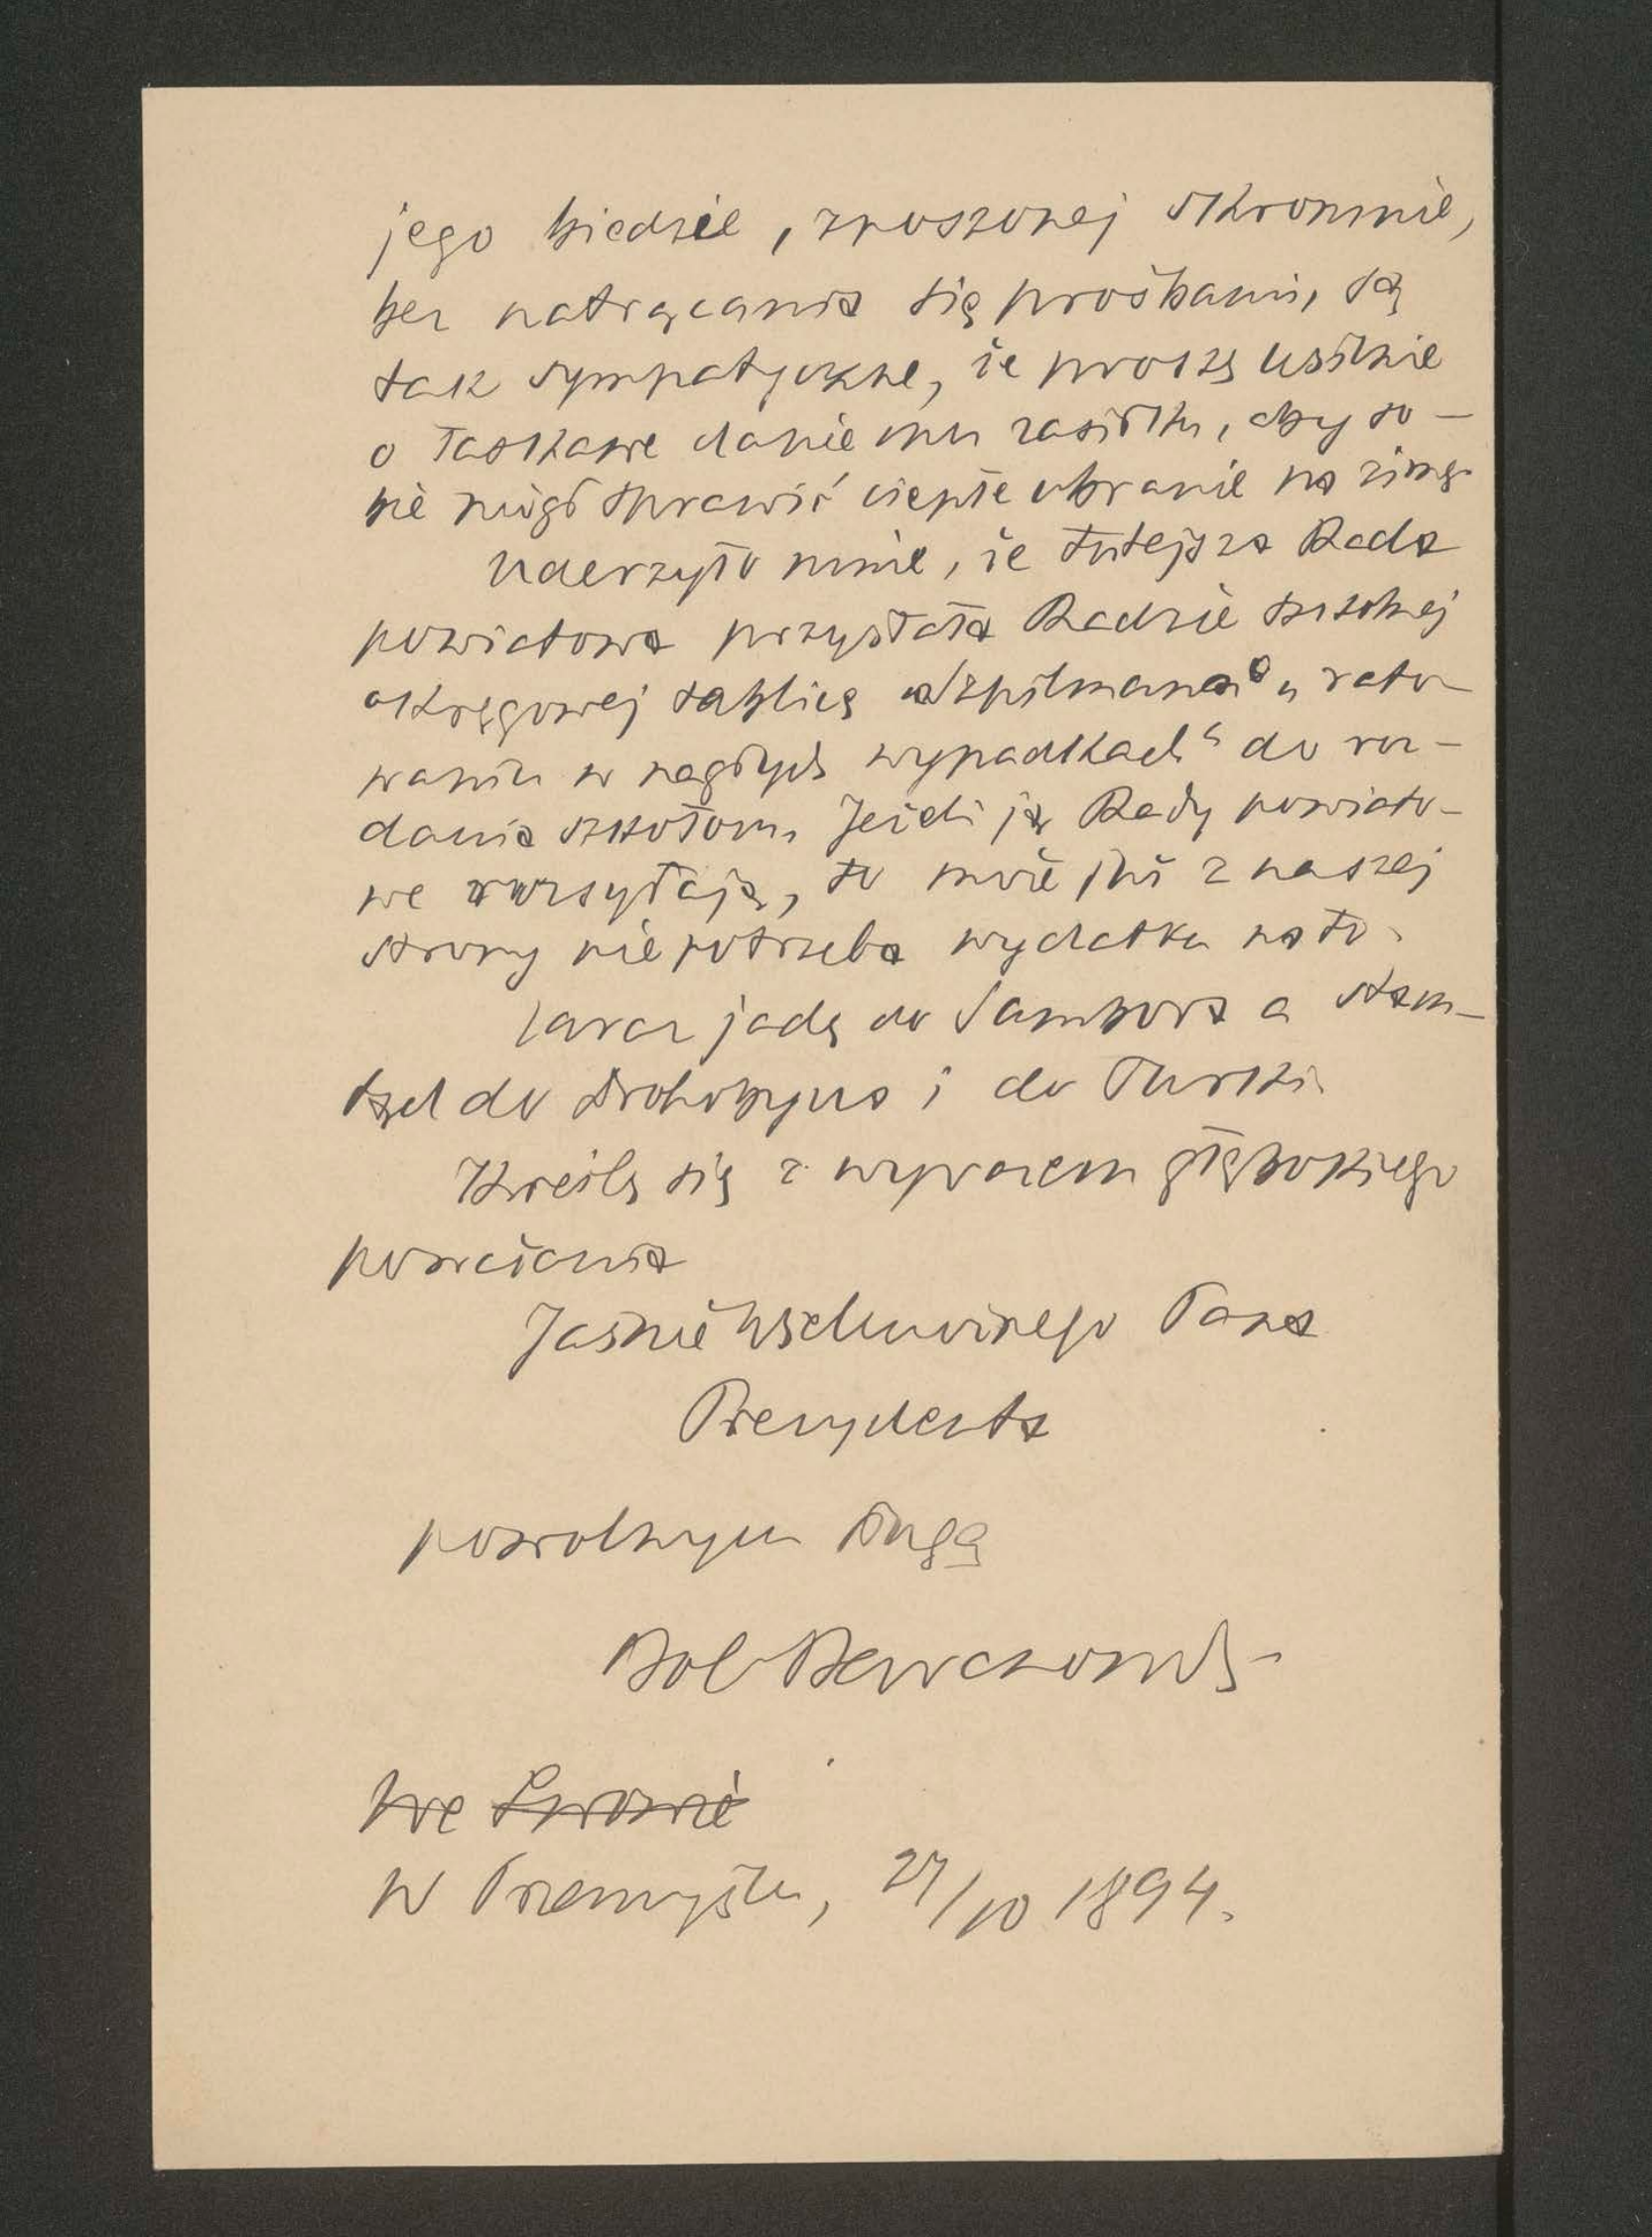 jego biedzie, znoszonej skromnie,
bez natrącania się prośbami, są
tak sympatyczne, że proszę usilnie
o łaskawe danie mu zasiłku, aby so-
bie mógł sprawić ciepłe ubranie na zimę.
Uderzyło mnie, że tutejsza Rada
powiatowa przysłała Radzie szkolnej
okręgowej tablicę Szpilmana „o rato-
waniu w nagłych wypadkach“ do roz-
dania szkołom. Jeżeli ją Rady powiato-
we rozsyłają, to może już z naszej
strony nie potrzeba wydatku na to.
Zaraz jadę do Sambora a stam-
tąd do Drohobycza i do Turki.
Kreślę się z wyrazem głębokiego
poważania
Jaśnie Wielmożnego Pana
Prezydenta
powolnym sługą
Bol Baranowski
We Lwowie
W Przemyślu, 27/10 1894.